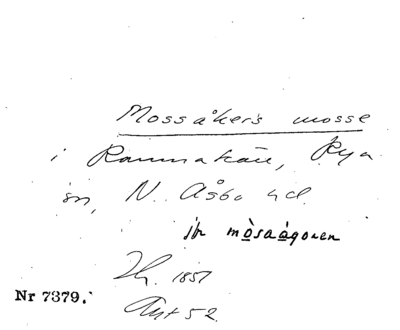 Mossåkers mosse
i Rammakärr, Rya
sn, N. Åsbo hd.
jfr mòsaàgoren
1851
Nr 7379.
Ant 52